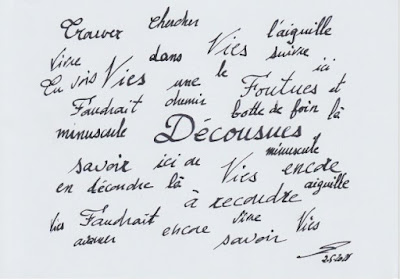 Trouver chercher l'aiguille
vivre dans Vies suivre
Tu vois Vies une le Foutues ici et
Faudrait chemin botte de foin là
minuscule Décousues
savoir ici ou Vies minuscule encore
en découdre là à recoudre aiguille
Vies Faudrait encore vivre Vies
avancer savoir